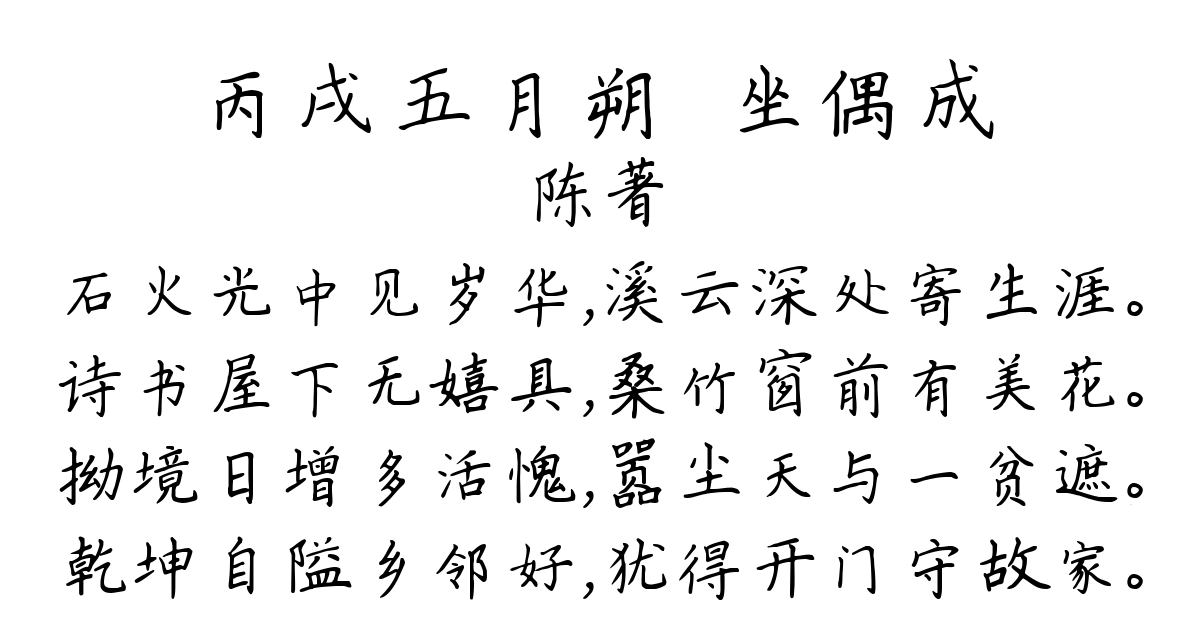 丙戌五月朔 坐偶成
陈著
石火光中见岁华,溪云深处寄生涯。
诗书屋下无嬉具,桑竹窗前有美花。
拗境日增多活愧,嚣尘天与一贫遮。
乾坤自隘乡邻好,犹得开门守故家。